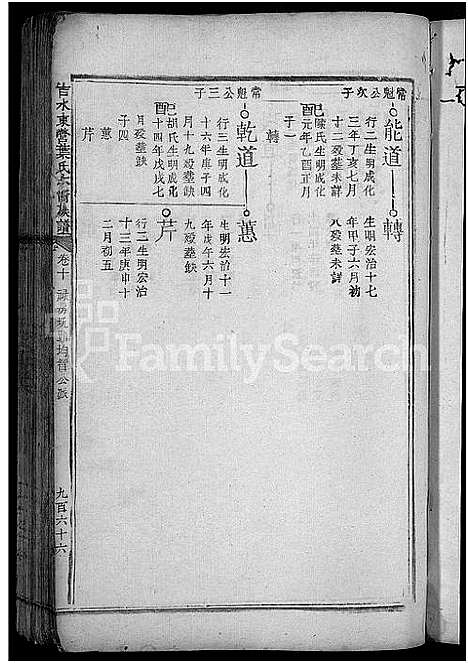 常魁公次子
能道
行二生明成化
三年丁亥七月
十二殁塟未詳
配陳氏生明成化
元年乙酉正月
子一
轉
轉
生明宏治十七
年甲子六月初
八殁塟未詳
常魁公三子
乾道
行三生明成化
十六年庚子四
月十九殁塟缺
配胡氏生明成化
十四年戊戌七
月殁塟缺
子四
蕙
芹
蕙
生明宏治十一
年戊午六月十
九殁塟缺
芹
行二生明宏治
十三年庚申十
二月初五
吉水東營葉氏六脩族譜
卷十
均晉公派
九百六十六
FamilySearch